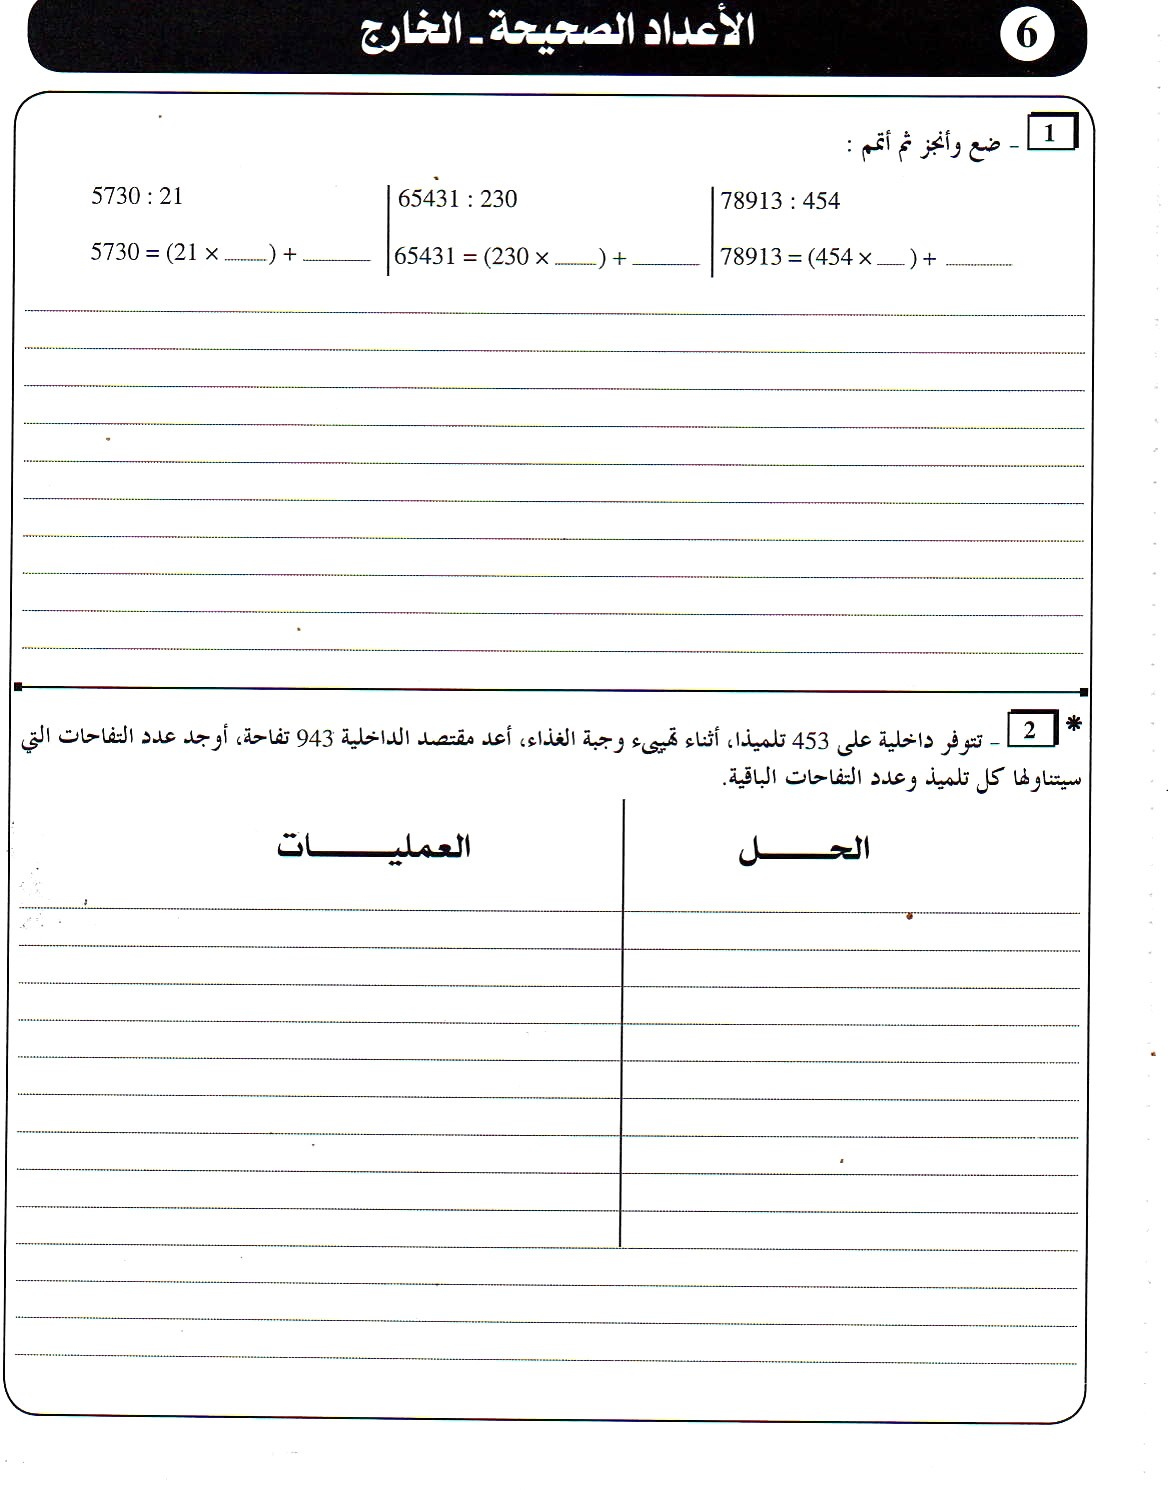 6
الأعداد الصحيحة ـ الخارج
1 - ضع وأنجز ثم أتمم :
5730 : 21
65431 : 230
78913 : 454
5730 = (21 × ____) + ______
65431 = (230 × ____) + ______
78913 = (454 × ___) + ______
* 2 - تتوفر داخلية على 453 تلميذا، أثناء تهييىء وجبة الغذاء، أعد مقتصد الداخلية 943 تفاحة، أوجد عدد التفاحات التي
سيتناولها كل تلميذ وعدد التفاحات الباقية.
الحـــــل
العمليـــــــات